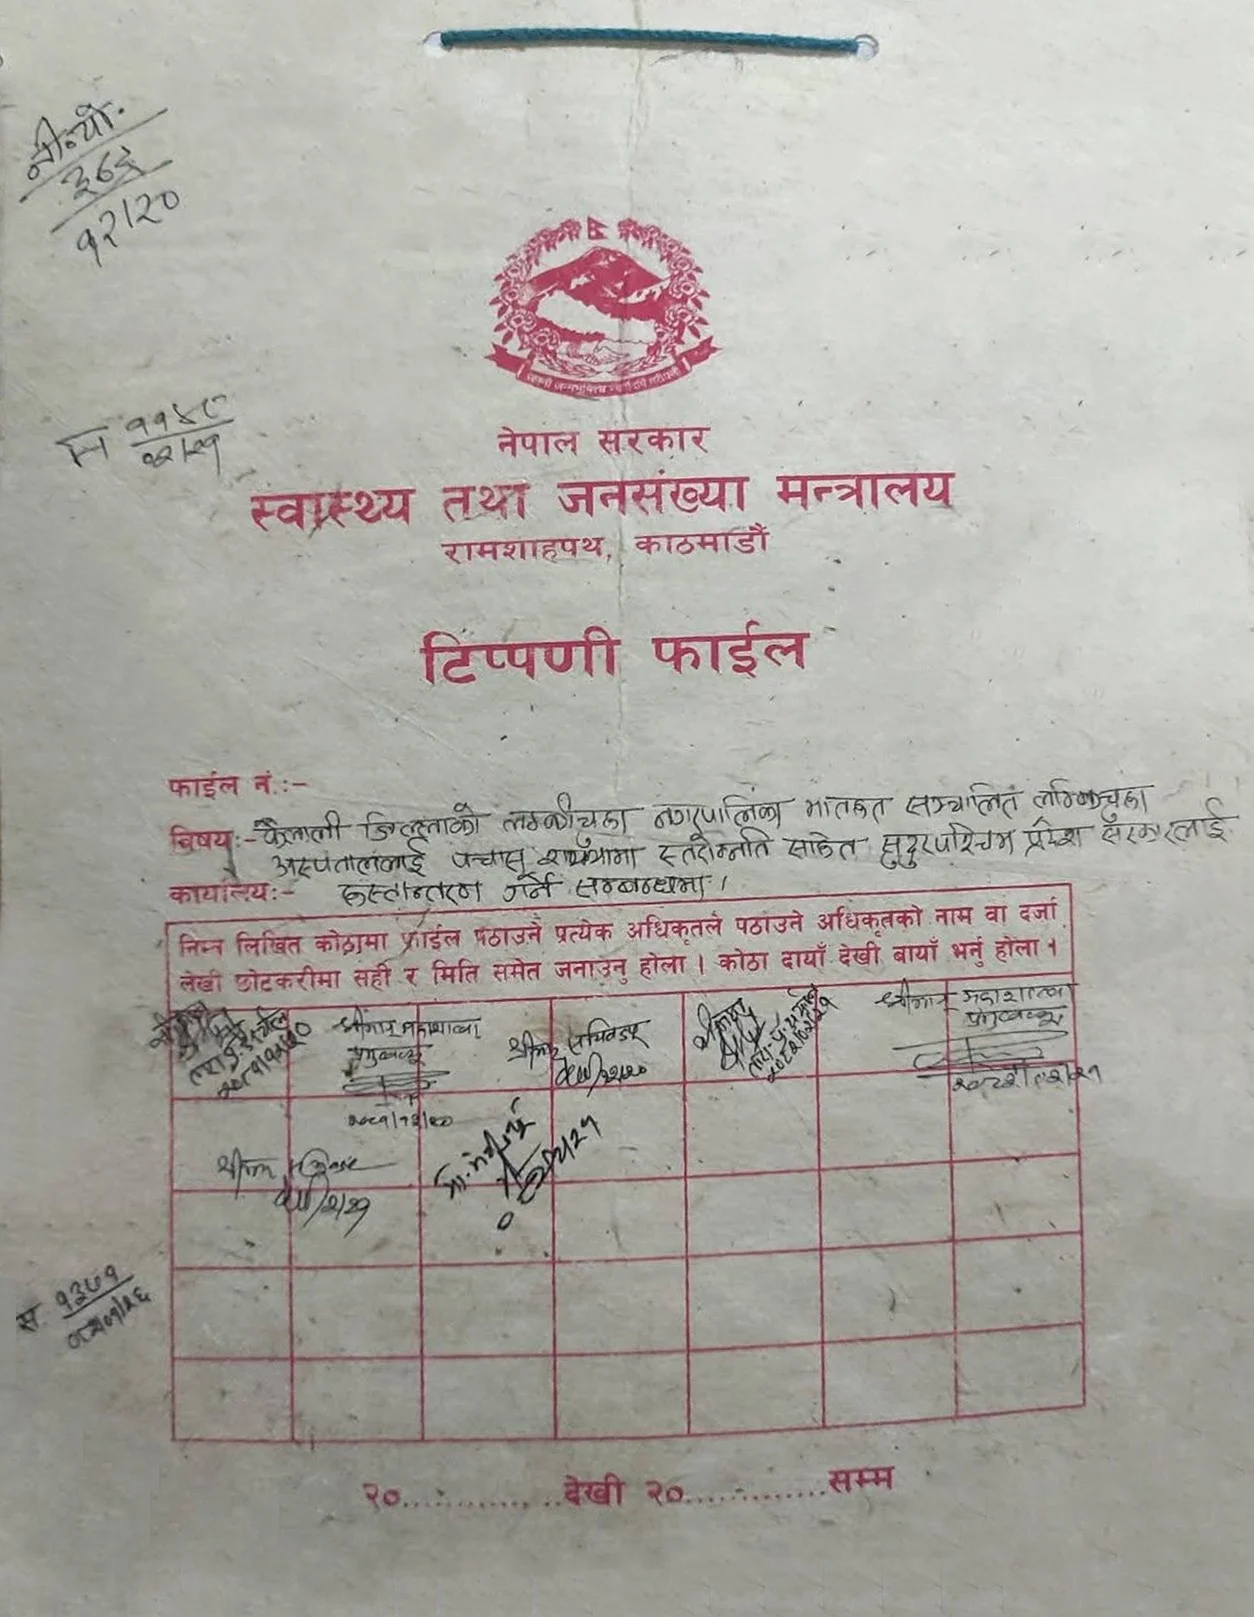 नी.यो.
३८६
१२/२०
जननी जन्मभूमिश्च स्वर्गादपि गरीयसी
स ११४८
१२/२१
नेपाल सरकार
स्वास्थ्य तथा जनसंख्या मन्त्रालय
रामशाहपथ, काठमाडौं
टिप्पणी फाईल
फाईल नं.:-
विषय:- कैलाली जिल्लाको लम्कीचुहा नगरपालिका मातहत सञ्चालित लम्किचुहा
अस्पताललाई पचास शय्यामा स्तरोन्नति सहित सुदुरपश्चिम प्रदेश सरकारलाई
कार्यालय:- हस्तान्तरण गर्ने सम्बन्धमा ।
निम्न लिखित कोठामा फाईल पठाउने प्रत्येक अधिकृतले पठाउने अधिकृतको नाम वा दर्जा
लेखी छोटकरीमा सही र मिति समेत जनाउनु होला । कोठा दायाँ देखी बायाँ भर्नु होला ।
श्रीमान् महाशाखा
प्रमुखज्यू
२०८१/१२/२०
श्रीमान् सचिवज्यू
१२/२०
श्रीमान् महाशाखा
प्रमुखज्यू
श्रीमान्
स. १३७१
२०............देखी २०............सम्म